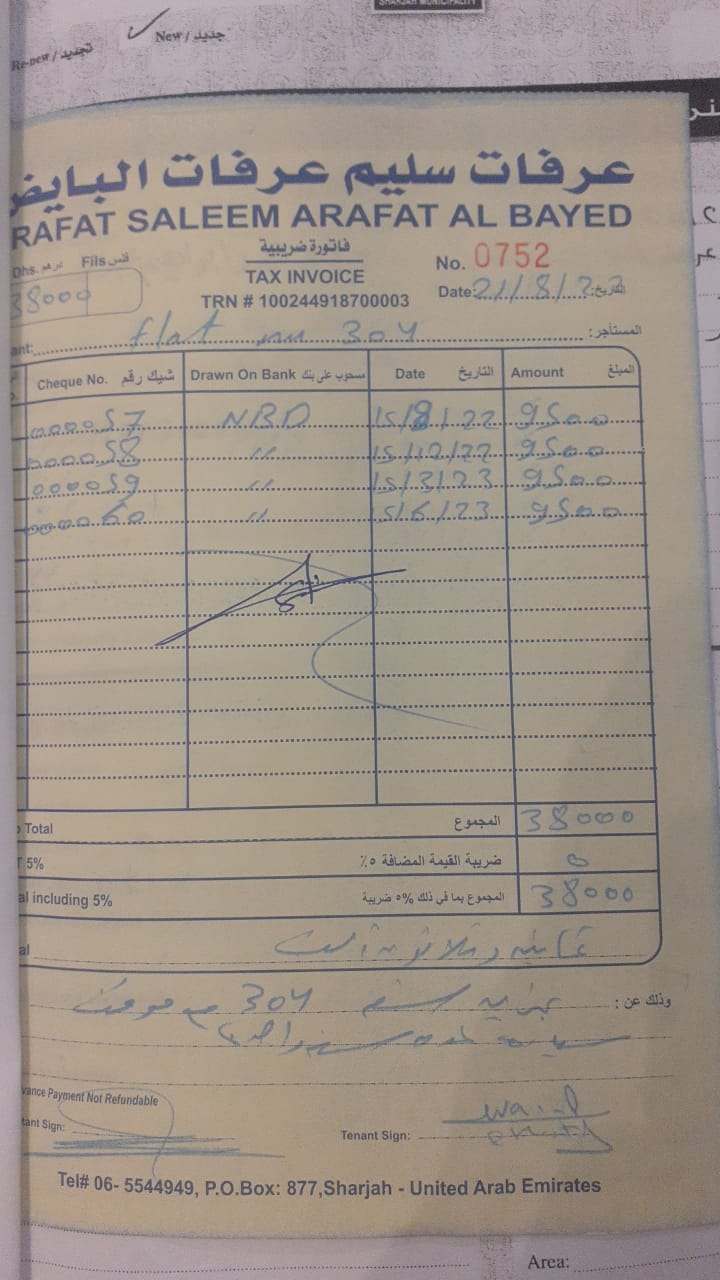 SHARJAH MUNICIPALITY
Re-new / تجديد New / جديد
عرفات سليم عرفات البايض
RAFAT SALEEM ARAFAT AL BAYED
Dhs. درهم Fils فلس
38000
فاتورة ضريبية
TAX INVOICE
TRN # 100244918700003
No. 0752
Date: 21/8/22 التاريخ:
ant: flat 304 المستأجر:
Cheque No. شيك رقم Drawn On Bank مسحوب على بنك Date التاريخ Amount المبلغ
000057 NBD 15/8/22 9500
000058 〃 15/12/22 9500
000059 〃 15/3/23 9500
000060 〃 15/6/23 9500
Total المجموع 38000
5% ضريبة القيمة المضافة ٥٪ 0
al including 5% المجموع بما في ذلك ٥% ضريبة 38000
al ثمانية وثلاثون الف
وذلك عن: 304
vance Payment Not Refundable
tant Sign: Tenant Sign:
Tel# 06- 5544949, P.O.Box: 877,Sharjah - United Arab Emirates
Area: